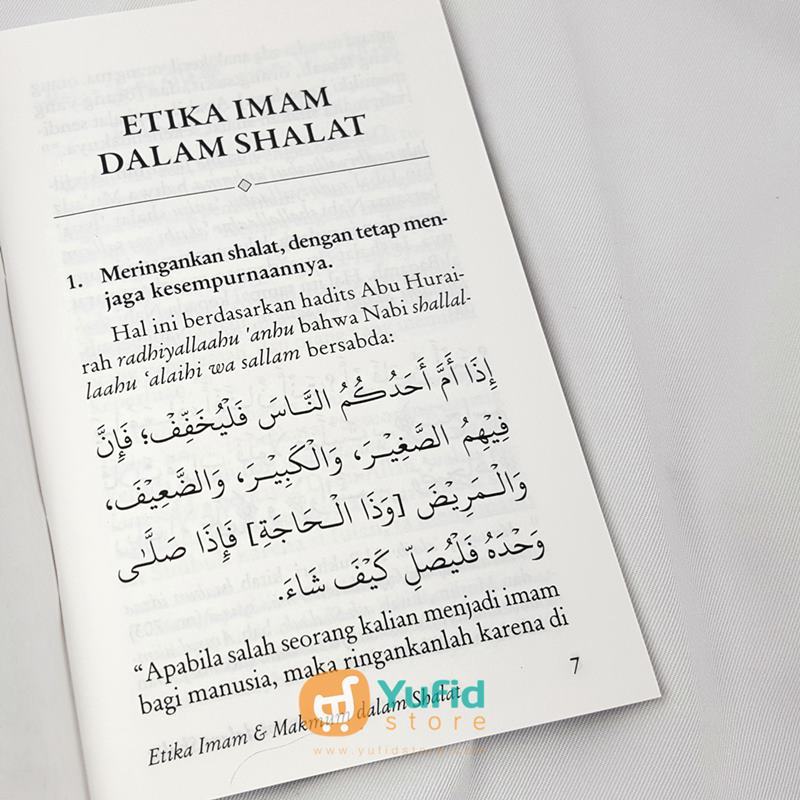 ETIKA IMAM
DALAM SHALAT
1. Meringankan shalat, dengan tetap men-
jaga kesempurnaannya.
Hal ini berdasarkan hadits Abu Hurai-
rah radhiyallaahu 'anhu bahwa Nabi shallal-
laahu ‘alaihi wa sallam bersabda:
إِذَا أَمَّ أَحَدُكُمُ النَّاسَ فَلْيُخَفِّفْ؛ فَإِنَّ
فِيْهِمُ الصَّغِيْرَ، وَالْكَبِيْرَ، وَالضَّعِيْفَ،
وَالْمَرِيْضَ [وَذَا الْحَاجَةِ] فَإِذَا صَلَّى
وَحْدَهُ فَلْيُصَلِّ كَيْفَ شَاءَ.
“Apabila salah seorang kalian menjadi imam
bagi manusia, maka ringankanlah karena di
7
Etika Imam & Makmum dalam Shalat
Yufid
store
www.yufidstore.com